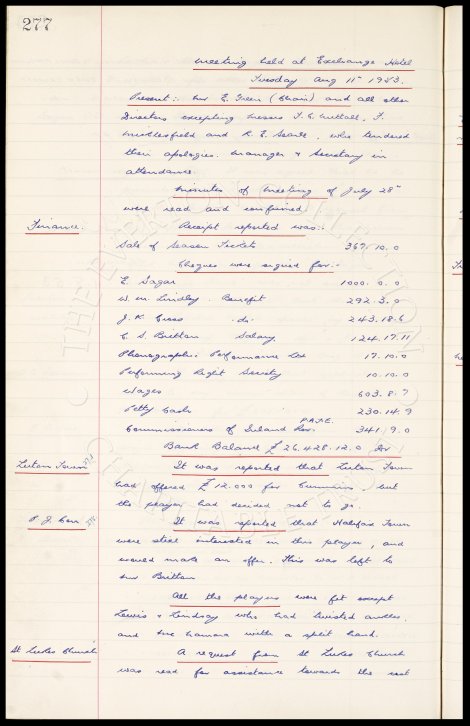 277
Meeting held at Exchange Hotel
Tuesday Aug 11th 1953.
Present:- Mr E. Green (Chair) and all other
Directors excepting Messrs T. C. Nuttall, F.
Micklesfield and R. E. Searle, who tendered
their apologies. Manager & Secretary in
attendance.
Minutes of Meeting of July 28th
were read and confirmed
Finance. Receipt reported was:-
Sale of Season Tickets 367.10.0
Cheques were signed for:-
E. Sagar 1000.0.0
W. M. Lindley. Benefit 292.3.0
J. K. Cross do. 243.18.6
C. S. Britton Salary 124.17.11
Phonographic Performance Ltd 17.10.0
Performing Right Society 10.10.0
Wages 603.8.7
Petty Cash 230.14.9
P.A.Y.E.
Commissioners of Inland Rev. 341.9.0
Bank Balance £26,428.12.0 Dr
Luton Town It was reported that Luton Town
had offered £12,000 for Cummins, but
the player had decided not to go.
It was reported that Halifax Town
were still interested in this player, and
would make an offer. This was left to
Mr Britton
All the players were fit except
Lewis & Lindsay who had twisted ankles,
and with a split hand.
St Lukes Church A request from St Lukes Church
was read for assistance towards the cost
THE EVERTON COLLECTION